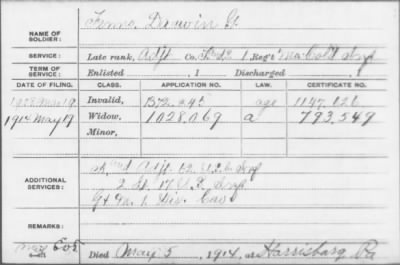 NAME OF SOLDIER: Fenno, Darwin C.
SERVICE: Late rank, Adjt Co. F & S 1 Reg't Md Cold Inf
TERM OF SERVICE: Enlisted , 1 Discharged , 1
DATE OF FILING. CLASS. APPLICATION NO. LAW. CERTIFICATE NO.
Invalid, age 1147.026
1914 May 19 Widow, 1028,069 a 793,549
Minor,
ADDITIONAL SERVICES: and Adjt 12 Inf
2 Lt. 17 U.S. Inf
1 Div. Cav
REMARKS:
Died May 5, 1914, at Harrisburg Pa